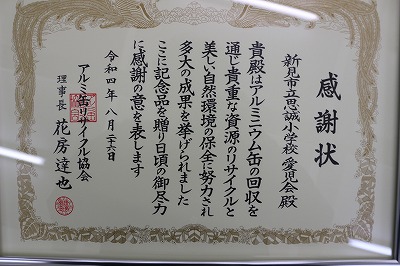 感謝状
新見市立思誠小学校 愛児会殿
貴殿はアルミニウム缶の回収を
通じ貴重な資源のリサイクルと
美しい自然環境の保全に努力され
多大の成果を挙げられました
ここに記念品を贈り日頃の御尽力
に感謝の意を表します
令和四年八月二十六日
アルミ缶リサイクル協会
理事長 花房達也